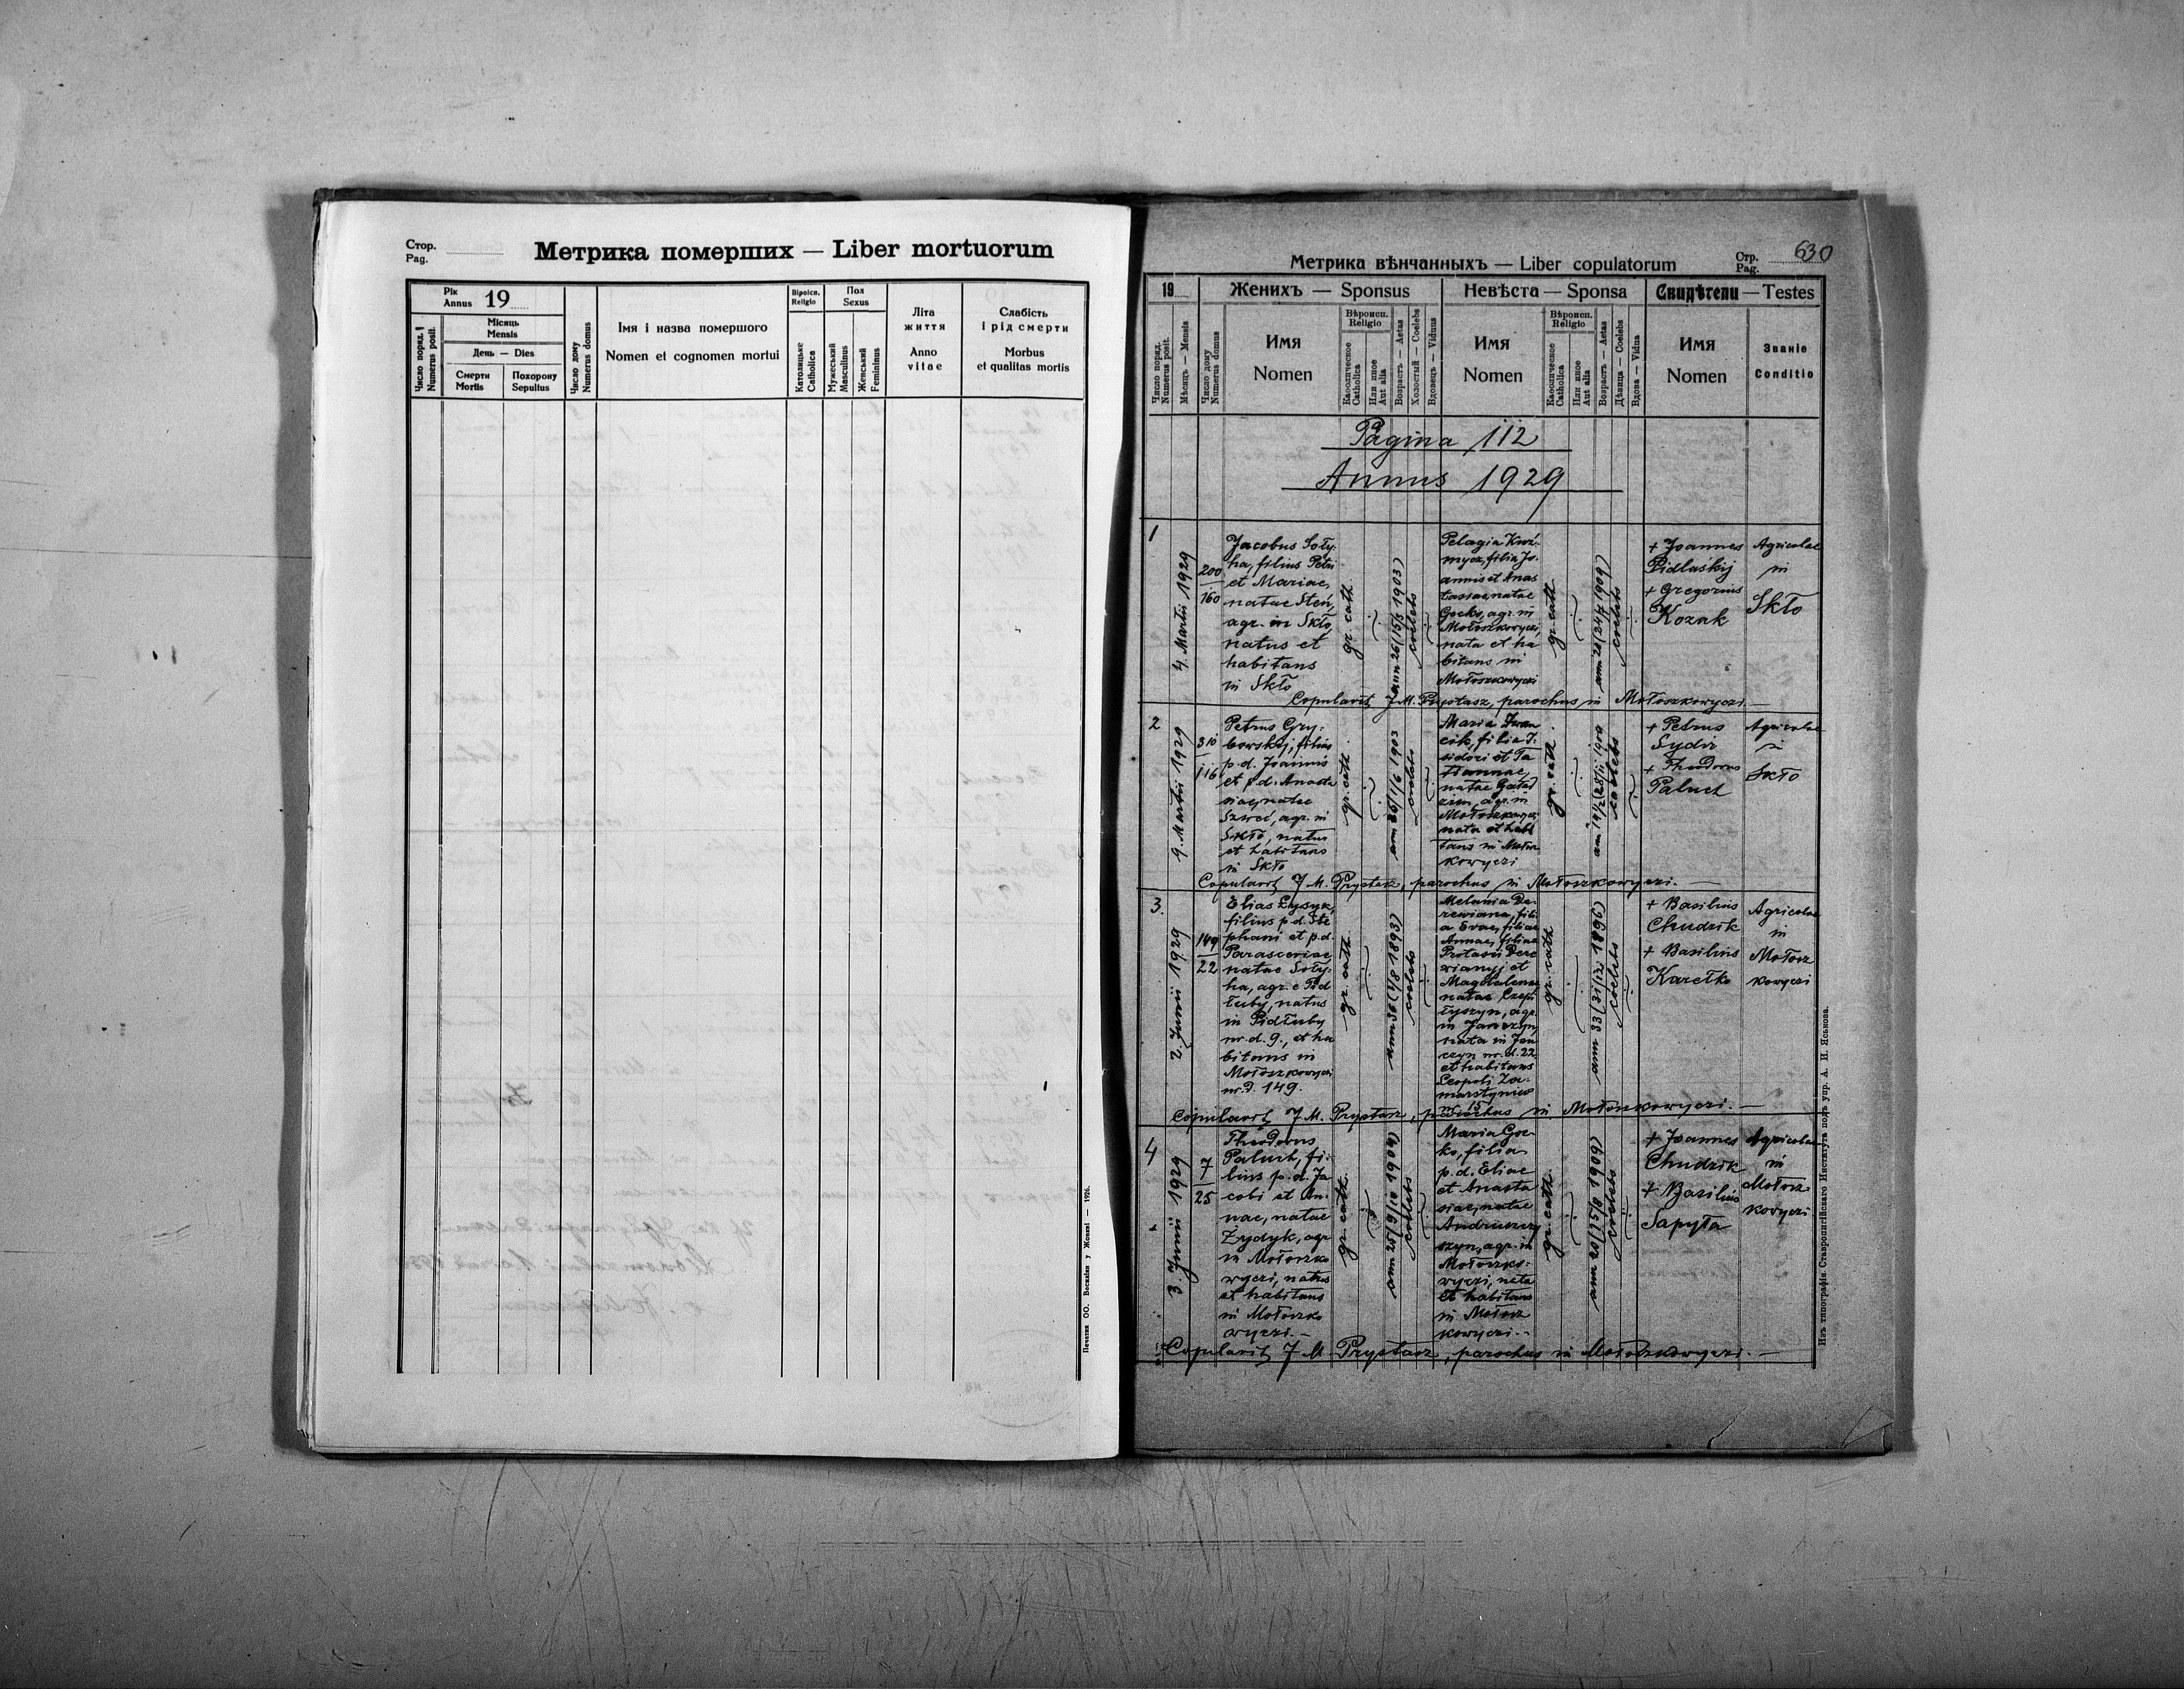 Стор.
Pag.
Метрика померших — Liber mortuorum
Рік
Annus 19
Число поряд.
Numerus posit.
Місяць
Mensis
День — Dies
Смерти
Mortis
Похорону
Sepultus
Число дому
Numerus domus
Імя і назва помершого
Nomen et cognomen mortui
Віроісп.
Religio
Католицьке
Catholica
Пол
Sexus
Мужеський
Masculinus
Женський
Femininus
Літа
життя
Anno
vitae
Слабість
і рід смерти
Morbus
et qualitas mortis
Печатня ОО. Василіян у Жовкві — 1926.
630
Метрика вѣнчанныхъ — Liber copulatorum
Стр.
Pag.
19
Женихъ — Sponsus
Невѣста — Sponsa
Свидѣтели — Testes
Число поряд.
Numerus posit.
Мѣсяць — Mensis
Число дому
Numerus domus
Имя
Nomen
Вѣроисп.
Religio
Каѳолическое
Catholica
Или иное
Aut alia
Возрастъ — Aetas
Холостый — Coelebs
Вдовець — Viduus
Имя
Nomen
Вѣроисп.
Religio
Каѳолическое
Catholica
Или иное
Aut alia
Возрастъ — Aetas
Дѣвица — Coelebs
Вдова — Vidua
Имя
Nomen
Званіе
Conditio
Pagina 112
Annus 1929
1
4. Martii 1929
200
160
Jacobus Soły-
ha, filius Petri
et Mariae,
natae Steń,
agr. in Skło,
natus et
habitans
in Skło
gr. cath
ann 26 (15/3 1903)
coelebs
Pelagia Kuź-
mycz, filia Jo-
annis et Anas
tasiae, natae
Gocko, agr. in
Mołoszkowyczi,
nata et ha
bitans in
Mołoszkowyczi
gr. cath
ann 20 (24/4 1909)
coelebs
+ Joannes
Pidlaskij
+ Gregorius
Kozak
Agricolae
in
Skło
Copulavit J. M. Prystasz, parochus in Mołoszkowyczi. —
2
9. Martii 1929
310
116
Petrus Gry-
bowskij, filius
p. d. Joannis
et p. d. Anasta
siae, natae
Szweć, agr. in
Skło, natus
et habitans
in Skło
gr. cath
coelebs
Maria
filia I-
sidori et Ta
tiannae,
natae
agr. in
Mołoszkowyczi
nata et habi
tans in Mołosz
kowyczi
gr. cath
coelebs
+ Petrus
Sydir
+ Theodorus
Paluch
Agricolae
in
Skło
Copulavit J. M. Prystasz, parochus in Mołoszkowyczi. —
3.
2. Junii 1929
149
22
Elias Łysyk,
filius p. d. Ste
phani et p. d.
Parasceviae,
natae Soły-
ha, agr. e Pid
łuby, natus
in Pidłuby
nr. d. 9., et ha
bitans in
Mołoszkowyczi
nr. d. 149.
gr. cath
coelebs
Melania De-
rewiana, fili
a Evae, filiae
Annae, filiae
Protasii Dere
wianyj et
Magdalenae
natae
agr.
in Janczyn,
nata in Jan
czyn nr. d. 22
et habitans
Leopoli Za-
marstyniw
nr. 15
gr. cath
ann 33 (31/12 1896)
coelebs
+ Basilius
Chudzik
+ Basilius
Karełko
Agricolae
in
Mołosz
kowyczi
Copulavit J. M. Prystasz, parochus in Mołoszkowyczi. —
4
3. Junii 1929
7
25
Theodorus
Paluch, fi-
lius p. d. Ja
cobi et An-
nae, natae
Żydyk, agr
in Mołoszko
wyczi, natus
et habitans
in Mołoszko
wyczi. —
gr. cath
ann 25 (9/10 1904)
coelebs
Maria Goc-
ko, filia
p. d. Eliae
et Anasta
siae, natae
Andruszczy
szyn, agr. in
Mołoszko-
wyczi, nata
et habitans
in Mołosz
kowyczi. -
gr. cath
coelebs
+ Joannes
Chudzik
+ Basilius
Sapyta
Agricolae
in
Mołosz
kowyczi
Copulavit J. M. Prystasz, parochus in Mołoszkowyczi. —
Изъ типографіи Ставропигійскаго Института подъ упр. А. И. Яськова.